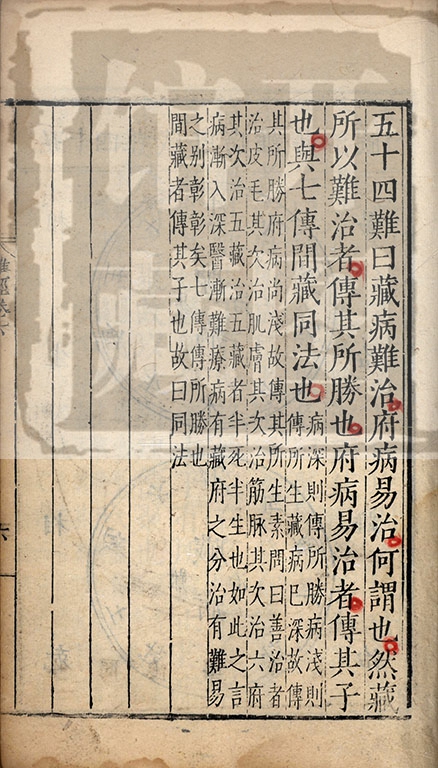 五十四難曰藏病難治府病易治何謂也然藏
所以難治者傳其所勝也府病易治者傳其子
也與七傳間藏同法也
病深則傳所勝病淺則
傳所生藏病已深故傳
其所勝府病尚淺故傳其所生素問曰善治者
治皮毛其次治肌膚其次治筋脉其次治六府
其次治五藏治五藏者半死半生也如此之言
病漸入深醫漸難療病有藏府之分治有難易
之别彰彰矣七傳傳所勝也
間藏者傳其子也故曰同法